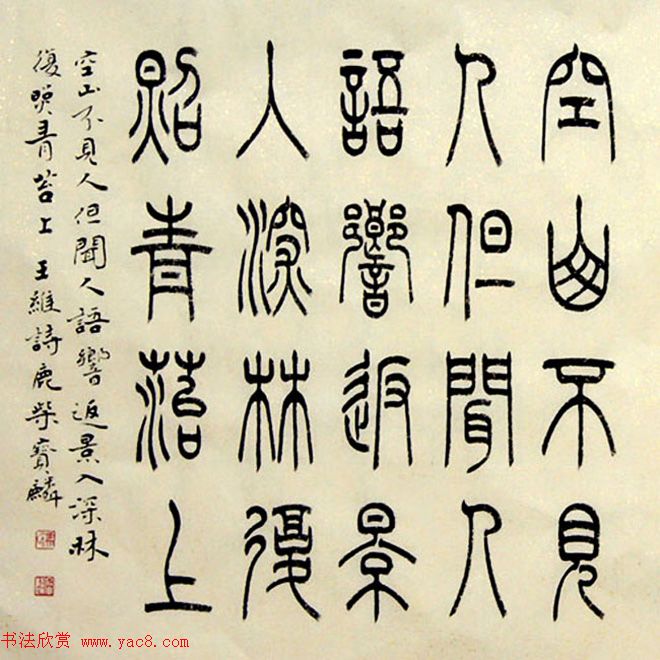 空山不見
人但聞人
語響返景
入深林復
照青苔上
空山不見人但聞人語響返景入深林
復照青苔上王維詩鹿柴寶麟
书法欣赏 www.yac8.com